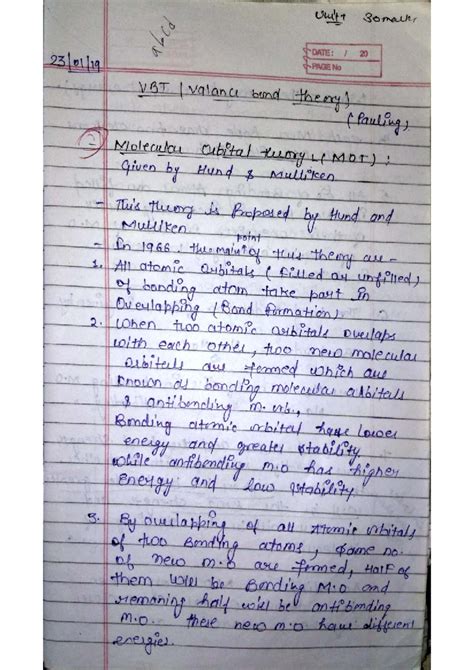 Unit 30 marks
abcd
DATE: / 20
PAGE No
23/01/19
VBT (Valance bond theory)
(Pauling)
2 Molecular Orbital theory (M.O.T) :
Given by Hund & Mulliken
- This theory is Proposed by Hund and
Mulliken
- In 1966. the main point of this theory are -
1. All atomic orbitals (filled or unfilled)
of bonding atom take part in
Overlapping (Bond formation)
2. When two atomic orbitals overlaps
with each other, two new molecular
orbitals are formed which are
known as bonding molecular orbitals
& antibonding m.orb.,
Bonding atomic orbital have lower
energy and greater stability
while antibonding m.o has higher
energy and low stability
3. By overlapping of all atomic orbitals
of two Bonding atoms, same no.
of new m.o are formed, Half of
them will be Bonding M.O and
remaning half will be antibonding
m.o. these new m.o have different
energies.